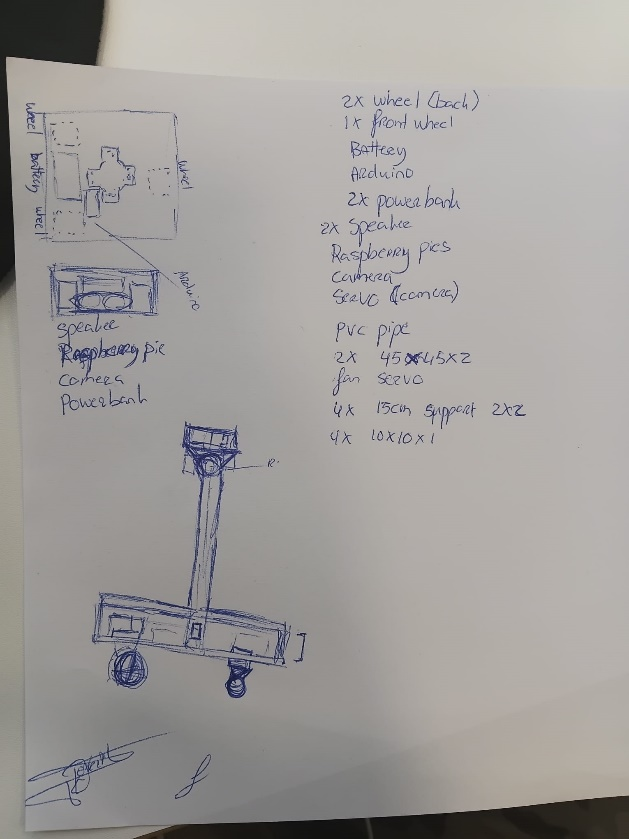 wheel
battery
wheel
wheel
Arduino
speaker
Raspberry pie
camera
Powerbank
R.
2x wheel (back)
1x front wheel
Battery
Arduino
2x powerbank
2x Speaker
Raspberry pies
camera
servo (camera)
PVC pipe
2x 45x45x2
fan servo
4x 15cm support 2x2
4x 10x10x1